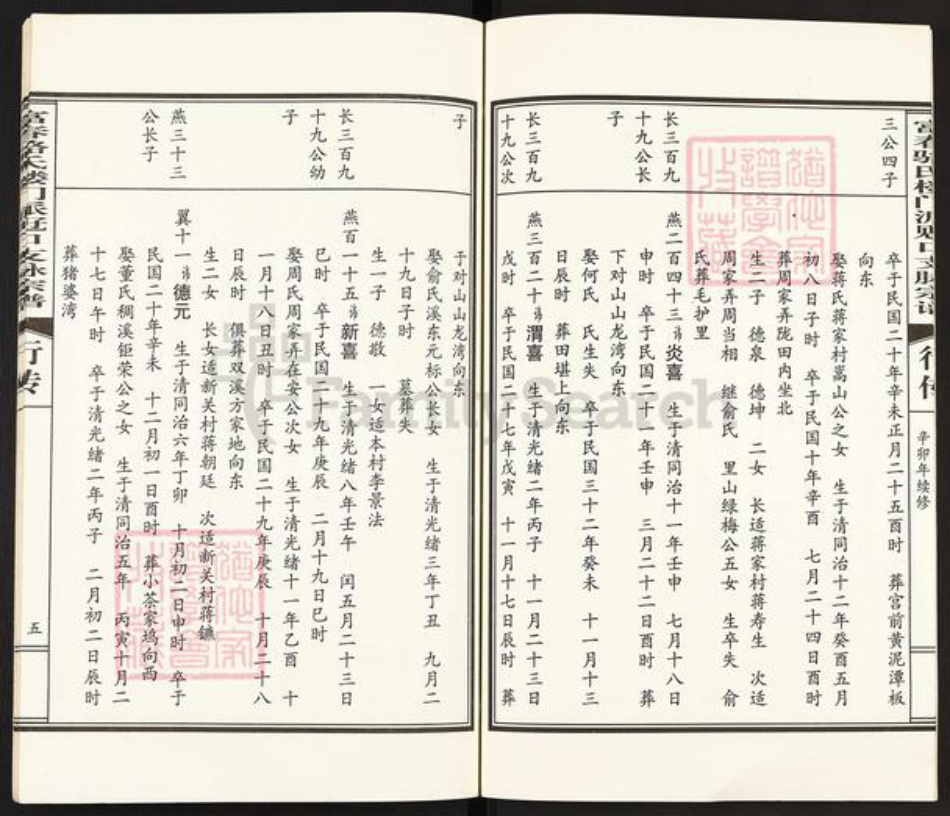 三公四子
卒于民国二十年辛未正月二十五酉时 葬宫前黄泥潭板
向东
娶蒋氏蒋家村嵩山公之女 生于清同治十二年癸酉五月
初八日子时 卒于民国十年辛酉 七月二十四日酉时
葬周家弄陇田内坐北
生二子 德泉 德坤 二女 长适蒋家村蒋寿生 次适
周家弄周当相 继俞氏 里山绿梅公五女 生卒失 俞
氏葬毛护里
长三百九
十九公长
子
燕二百四十三讳炎喜 生于清同治十一年壬申 七月十八日
申时 卒于民国二十一年壬申 三月二十二日酉时 葬
下对山山龙湾向东
娶何氏 氏生失 卒于民国三十二年癸未 十一月十三
日辰时 葬田堪上向东
长三百九
十九公次
燕三百二十讳渭喜 生于清光绪二年丙子 十一月二十三日
戊时 卒于民国二十七年戊寅 十一月十七日辰时 葬
辛卯年续修
行传
子
于对山山龙湾向东
娶俞氏溪东元标公长女 生于清光绪三年丁丑 九月二
十九日子时 墓葬失
生一子 德敬 一女适本村李景法
长三百九
十九公幼
子
燕百一十五讳新喜 生于清光绪八年壬午 闰五月二十三日
巳时 卒于民国二十九年庚辰 二月十九日巳时
娶周氏周家弄在安公次女 生于清光绪十一年乙酉 十
一月十八日丑时 卒于民国二十九年庚辰 十月二十八
日辰时 俱葬双溪方家地向东
生二女 长女适新关村蒋朝廷 次适新关村蒋镳
燕三十三
公长子
翼十一讳德元 生于清同治六年丁卯 十月初二日申时 卒于
民国二十年辛未 十二月初一日酉时 葬小茶家坞向西
娶董氏稠溪钜荣公之女 生于清同治五年 丙寅十月二
十七日午时 卒于清光绪二年丙子 二月初二日辰时
葬猪婆湾
行传
五
FamilySearch